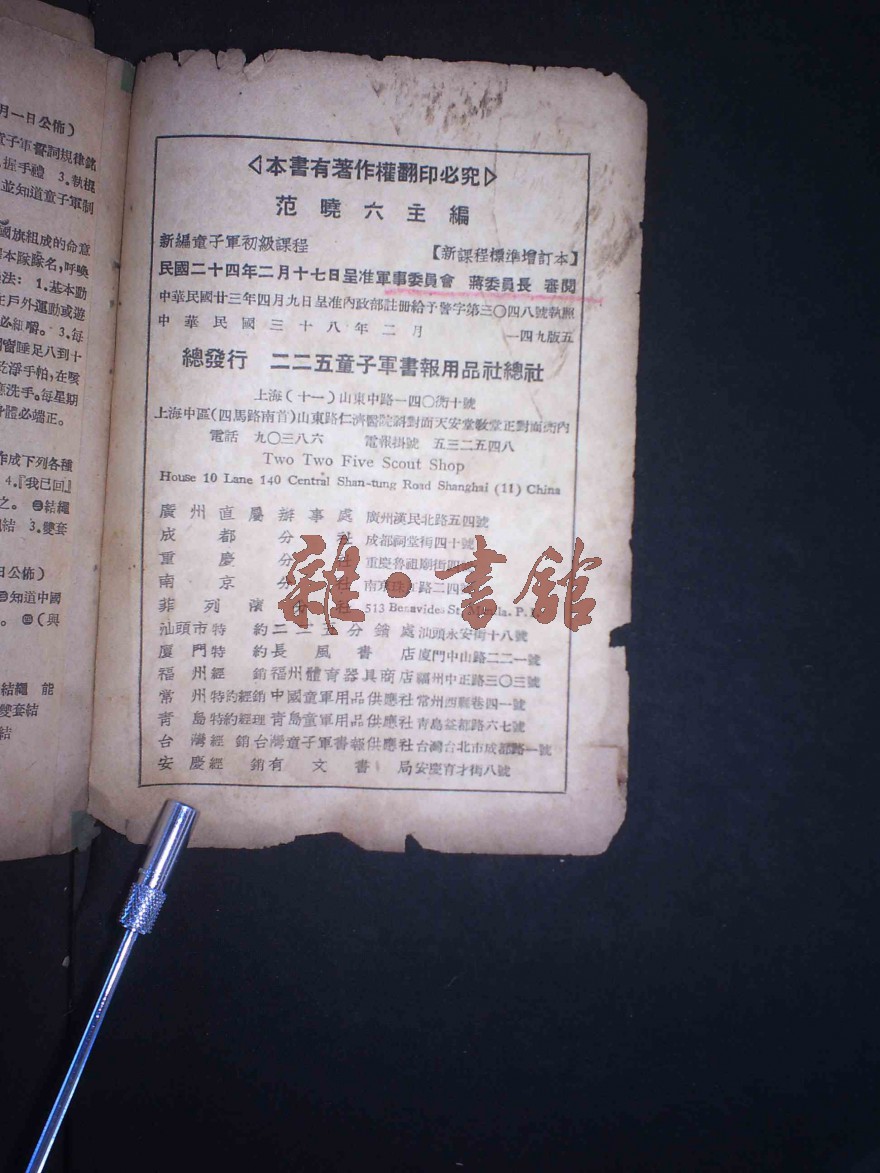 月一日公佈)
童子軍誓詞規律銘
握手禮 3.執棍
並知道童子軍制
國旗組成的命意
本隊隊名,呼喚
法: 1.基本動
在戶外運動或遊
必細嚼。 3.每
窗睡足八到十
乾淨手帕,在咳
洗手。每星期
身體必端正。
作成下列各種
4.『我已回』
之。 結繩
結 3.雙套
日公佈)
知道中國
。 ㈣(與
結繩 能
雙套結
結
◁本書有著作權翻印必究▷
范曉六主編
新編童子軍初級課程 【新課程標準增訂本】
民國二十四年二月十七日呈准軍事委員會 蔣委員長 審閱
中華民國廿三年四月九日呈准內政部註冊給予警字第三〇四八號執照
中華民國三十八年二月 一四九版五
總發行 二二五童子軍書報用品社總社
上海(十一)山東中路一四〇衖十號
上海中區(四馬路南首)山東路仁濟醫院斜對面天安堂敎堂正對面衖內
電話 九〇三八六 電報掛號 五三二五四八
Two Two Five Scout Shop
House 10 Lane 140 Central Shan-tung Road Shanghai (11) China
廣州直屬辦事處 廣州漢民北路五四號
成都分社 成都祠堂街四十號
重慶分社 重慶魯祖廟街四
南京分社 南京珠江路二四
菲列濱分社 513 Benavides St. Manila. P. I.
汕頭市特約二二五分銷處 汕頭永安街十八號
廈門特約長風書店 廈門中山路二二一號
福州經銷福州體育器具商店 福州中正路三〇三號
常州特約經銷中國童軍用品供應社 常州西瀛巷四一號
青島特約經理青島童軍用品供應社 青島益都路六七號
台灣經銷台灣童子軍書報供應社 台灣台北市成都路一號
安慶經銷有文書局 安慶育才街八號
雜·書館